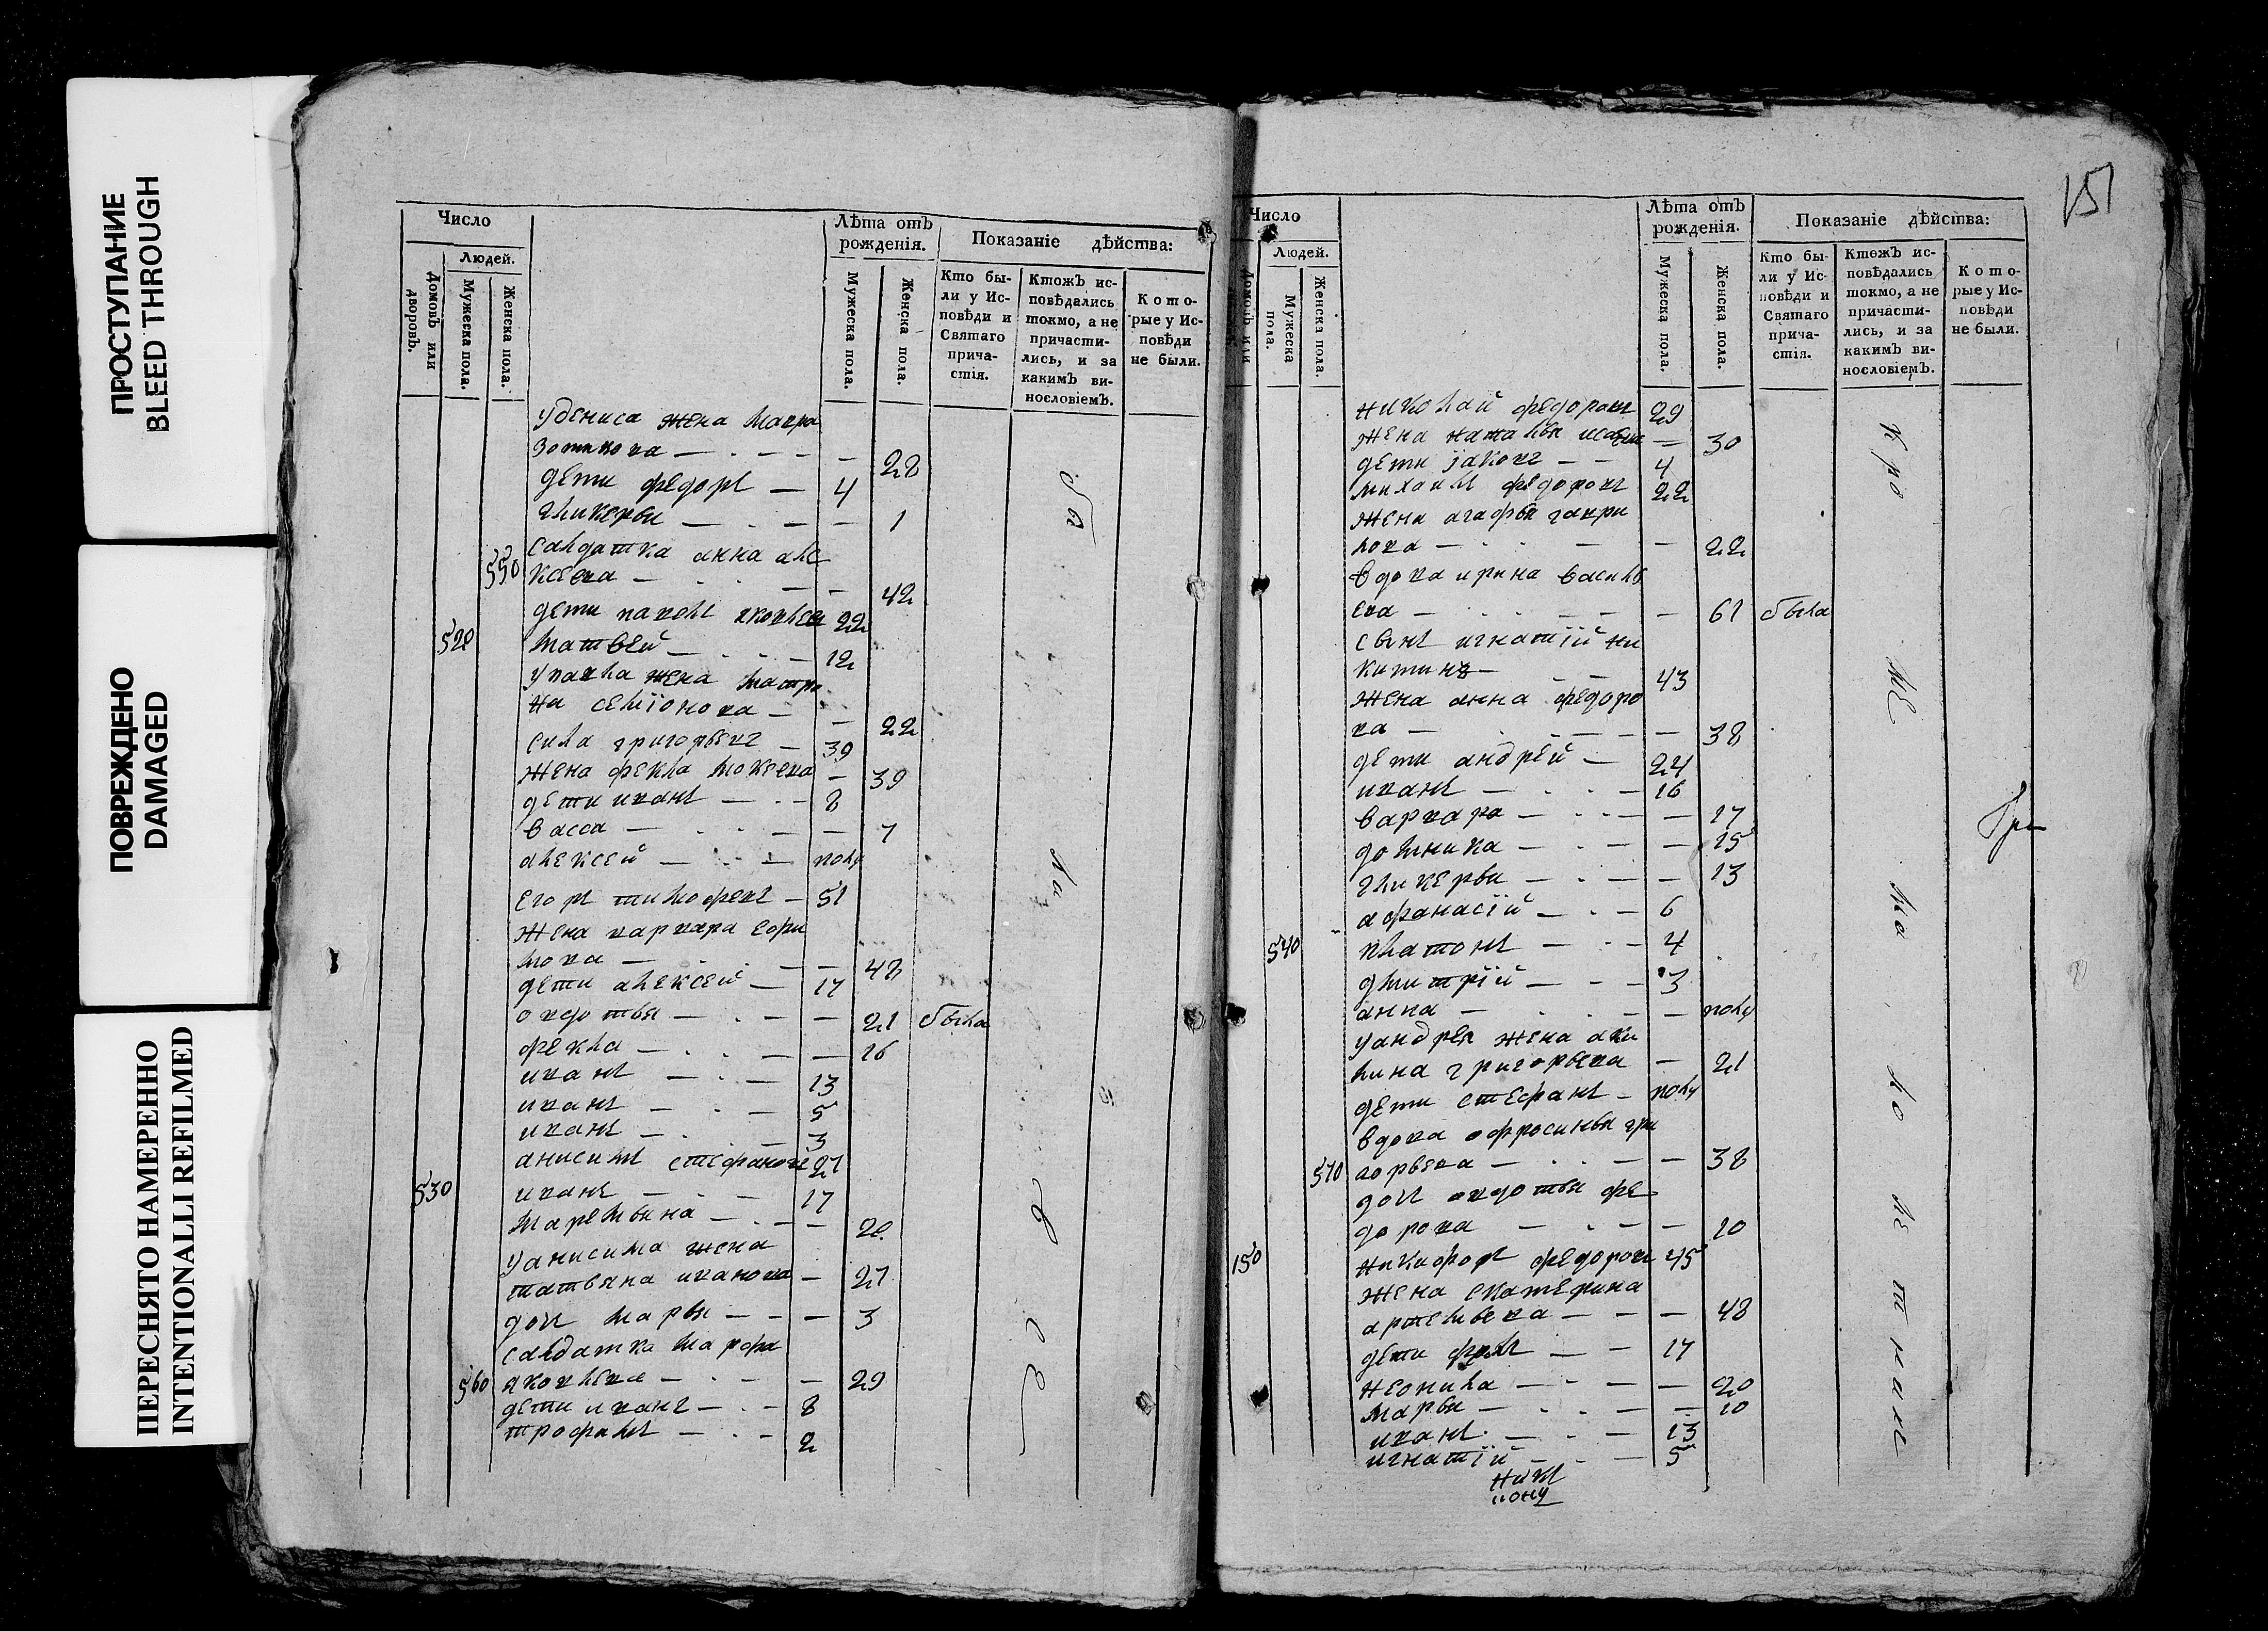 ПРОСТУПАНИЕ
BLEED THROUGH
ПОВРЕЖДЕНО
DAMAGED
ПЕРЕСНЯТО НАМЕРЕННО
INTENTIONALLI REFILMED
Число
Людей.
Домовъ или дворовъ.
Мужеска пола.
Женска пола.
Лѣта отъ рожденія.
Мужеска пола.
Женска пола.
Показаніе дѣйства:
Кто бы-
ли у Ис-
повѣди и
Святаго
прича-
стія.
Ктожъ ис-
повѣдались
токмо, а не
причасти-
лись, и за
какимъ ви-
нословіемъ.
Кото-
рые у Ис-
повѣди
не были.
у дениса жена мавра
зотикова — 28
дети федоръ — 4
гликерья — 1
550 салдатка анна але
ксеева — 42
дети павелъ яковлевъ 22
520 матвей — 12
у павла жена матре
на семіонова — 22
сила григорьевъ — 39
жена фекла мокеева — 39
дети иванъ — 8
васса — 7
алексей — полу
егоръ тимофевъ — 51
жена варвара ефи
мова — 48
дети алексей — 17
овдотья — 21 была
фекла — 16
иванъ — 13
иванъ — 5
иванъ — 3
анисимъ стефановъ 27
530 иванъ — 17
маремьяна — 20
у анисима жена
татьяна иванова — 27
дочь марья — 3
салдатка марфа
560 яковлева — 29
дети иванъ — 8
трофимъ — 2
151
Число
Людей.
Домовъ или
Мужеска пола.
Женска пола.
Лѣта отъ рожденія.
Мужеска пола.
Женска пола.
Показаніе дѣйства:
Кто бы-
ли у Ис-
повѣди и
Святаго
прича-
стія.
Ктожъ ис-
повѣдались
токмо, а не
причасти-
лись, и за
какимъ ви-
нословіемъ.
Кото-
рые у Ис-
повѣди
не были.
николай федоровъ 29
жена наталья — 30
дети іаковъ — 4
михаилъ федоровъ 22
жена агафья гаври
лова — 22
вдова ирина василь
ева — 61 была
сынъ игнатій ни
китинъ — 43
жена анна федоро
ва — 38
дети андрей — 24
иванъ — 16
варвара — 17
домника — 15
гликерья — 13
афанасій — 6
540 платонъ — 4
дмитрій — 3
анна — полу
у андрея жена аку
лина григорьева — 21
дети стефанъ — полу
вдова офросинья гри
570 горьева — 38
дочь овдотья фе
дорова — 10
150 никифоръ федоровъ 45
жена екатерина
артемьева — 48
дети — 17
неонила — 20
марья — 10
иванъ — 13
игнатій — 5